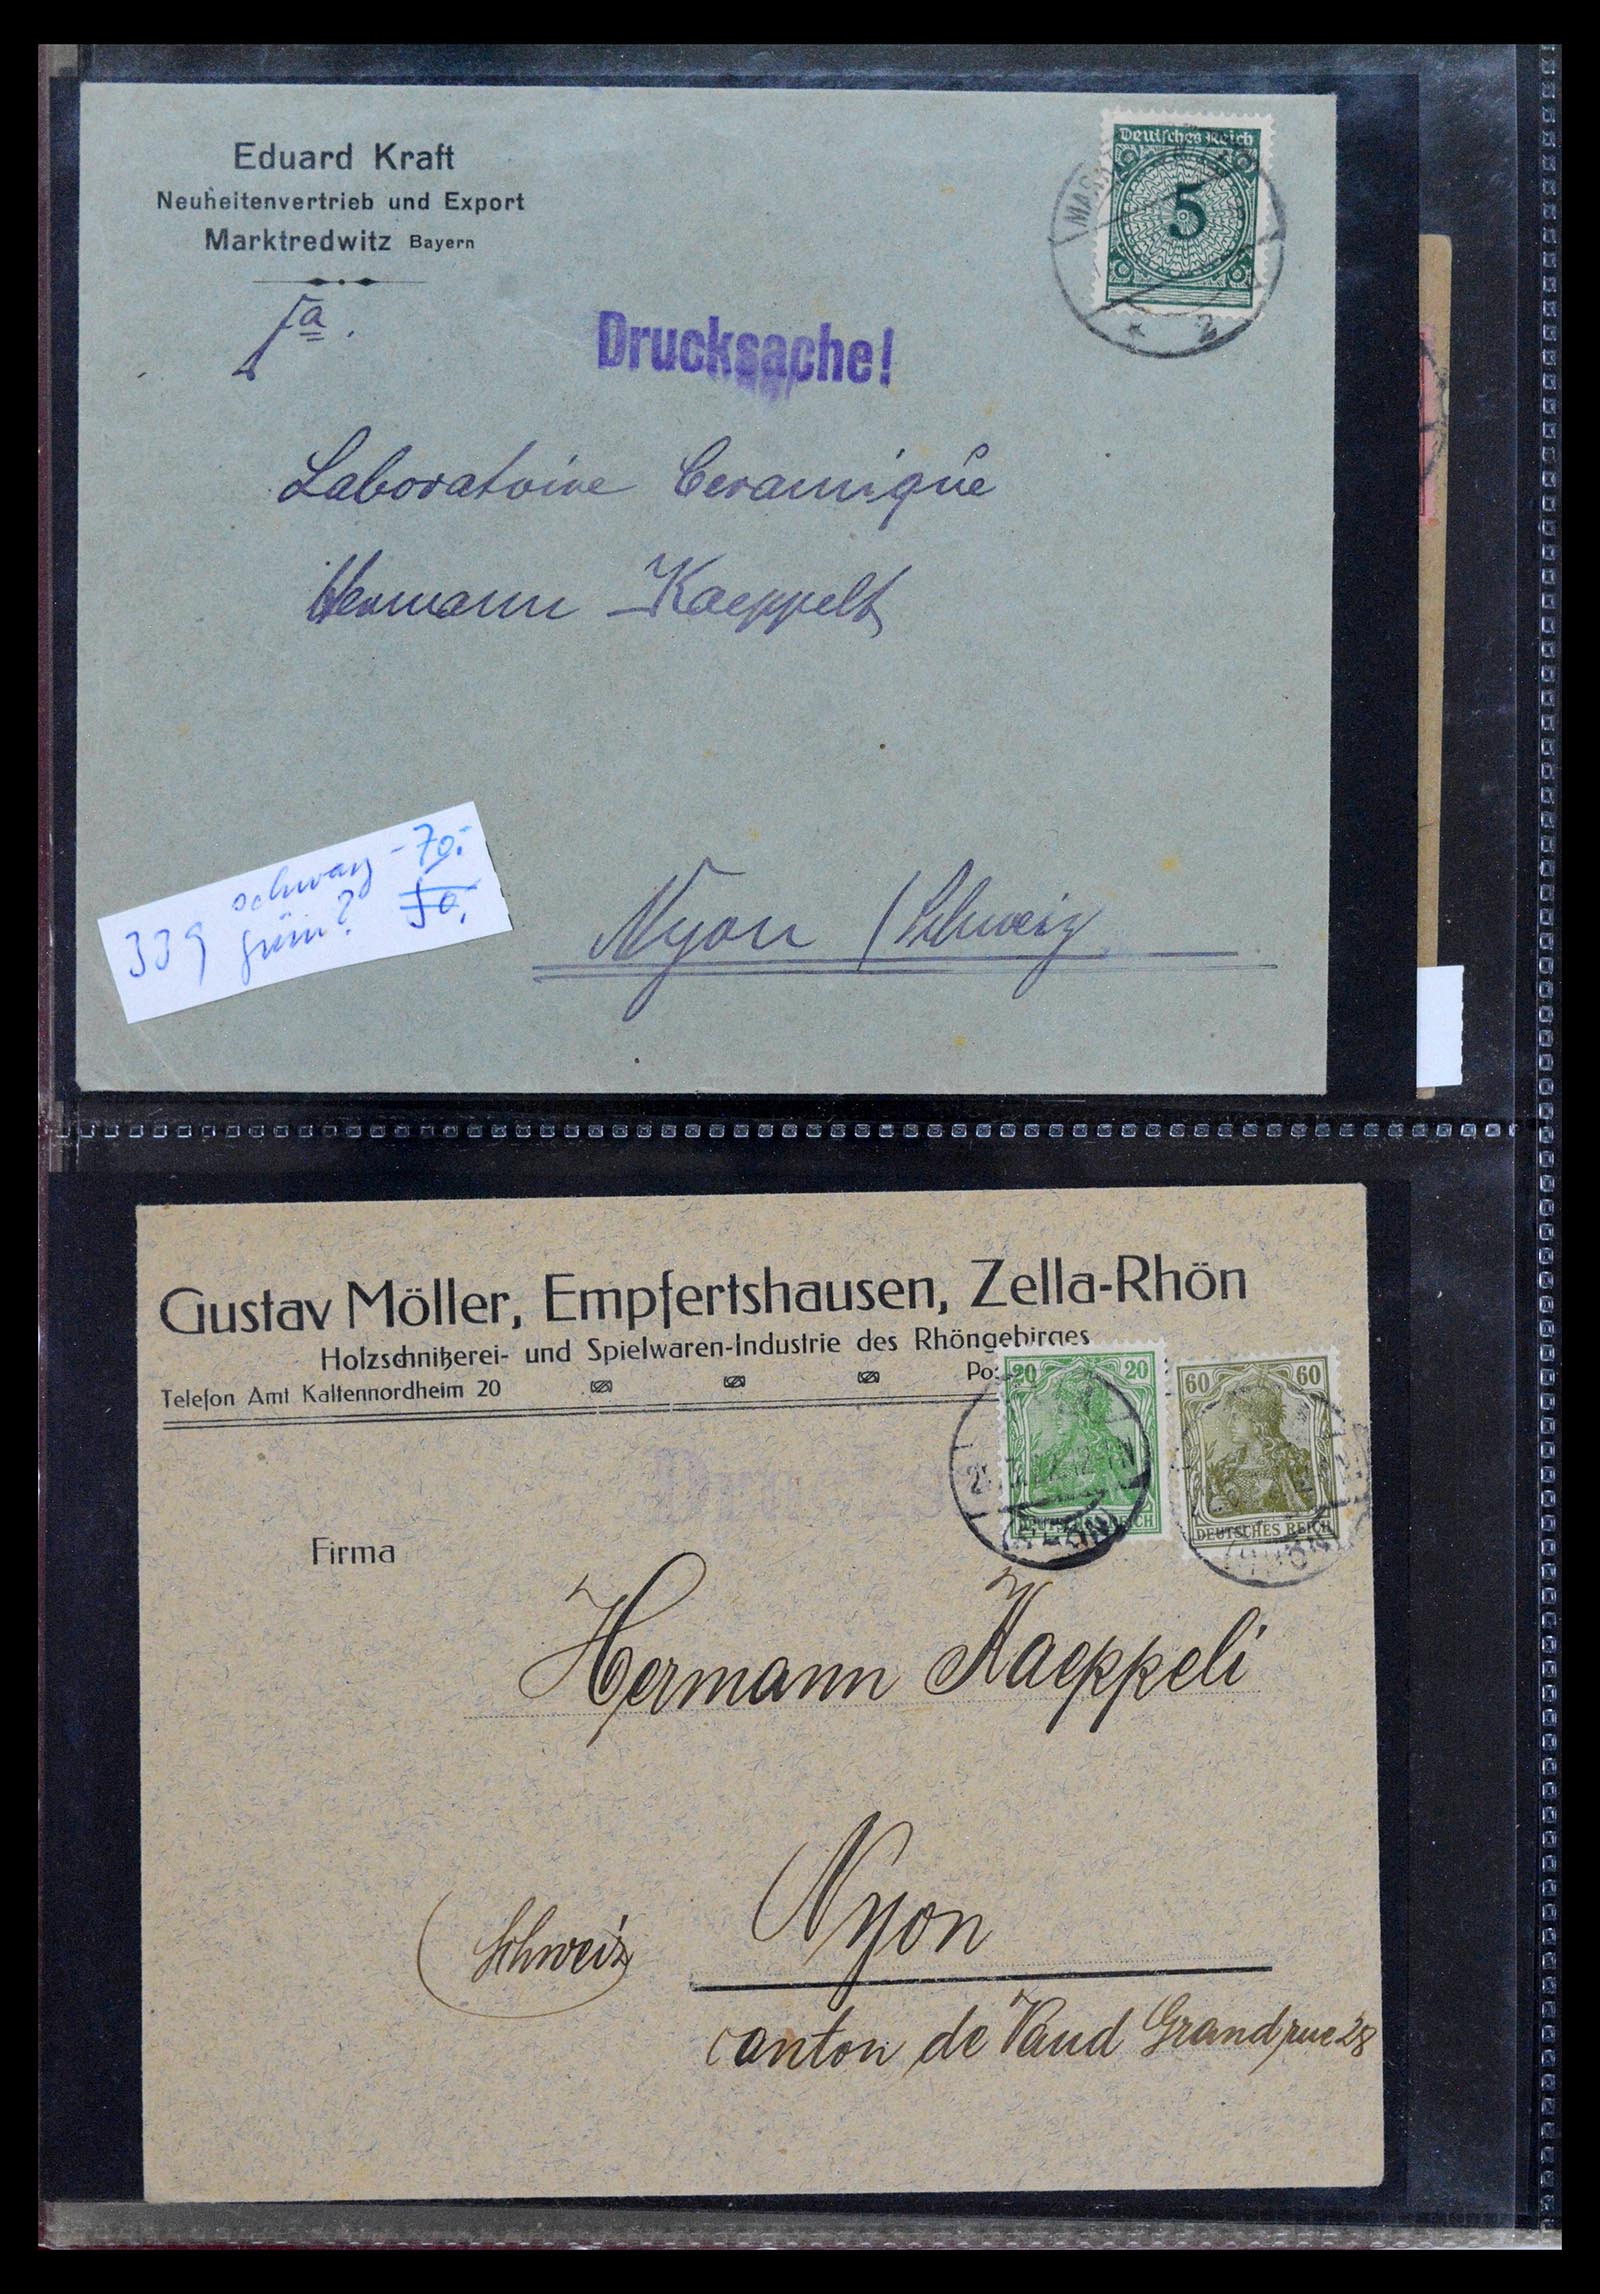 Eduard Kraft
Neuheitenvertrieb und Export
Marktredwitz Bayern
Fa.
Drucksache!
Deutsches Reich
5
MAR
* 2
Laboratoire Ceramique
Hermann Kaeppelt
Nyon / Schweiz
339 schwarz - 70.-
grün? 50.
Gustav Möller, Empfertshausen, Zella-Rhön
Holzschnitzerei- und Spielwaren-Industrie des Rhöngebirges
Telefon Amt Kaltennordheim 20
20 20
DEUTSCHES REICH
60 60
DEUTSCHES REICH
Firma
Hermann Kaeppeli
Nyon
(Schweiz)
canton de Vaud Grand rue 28